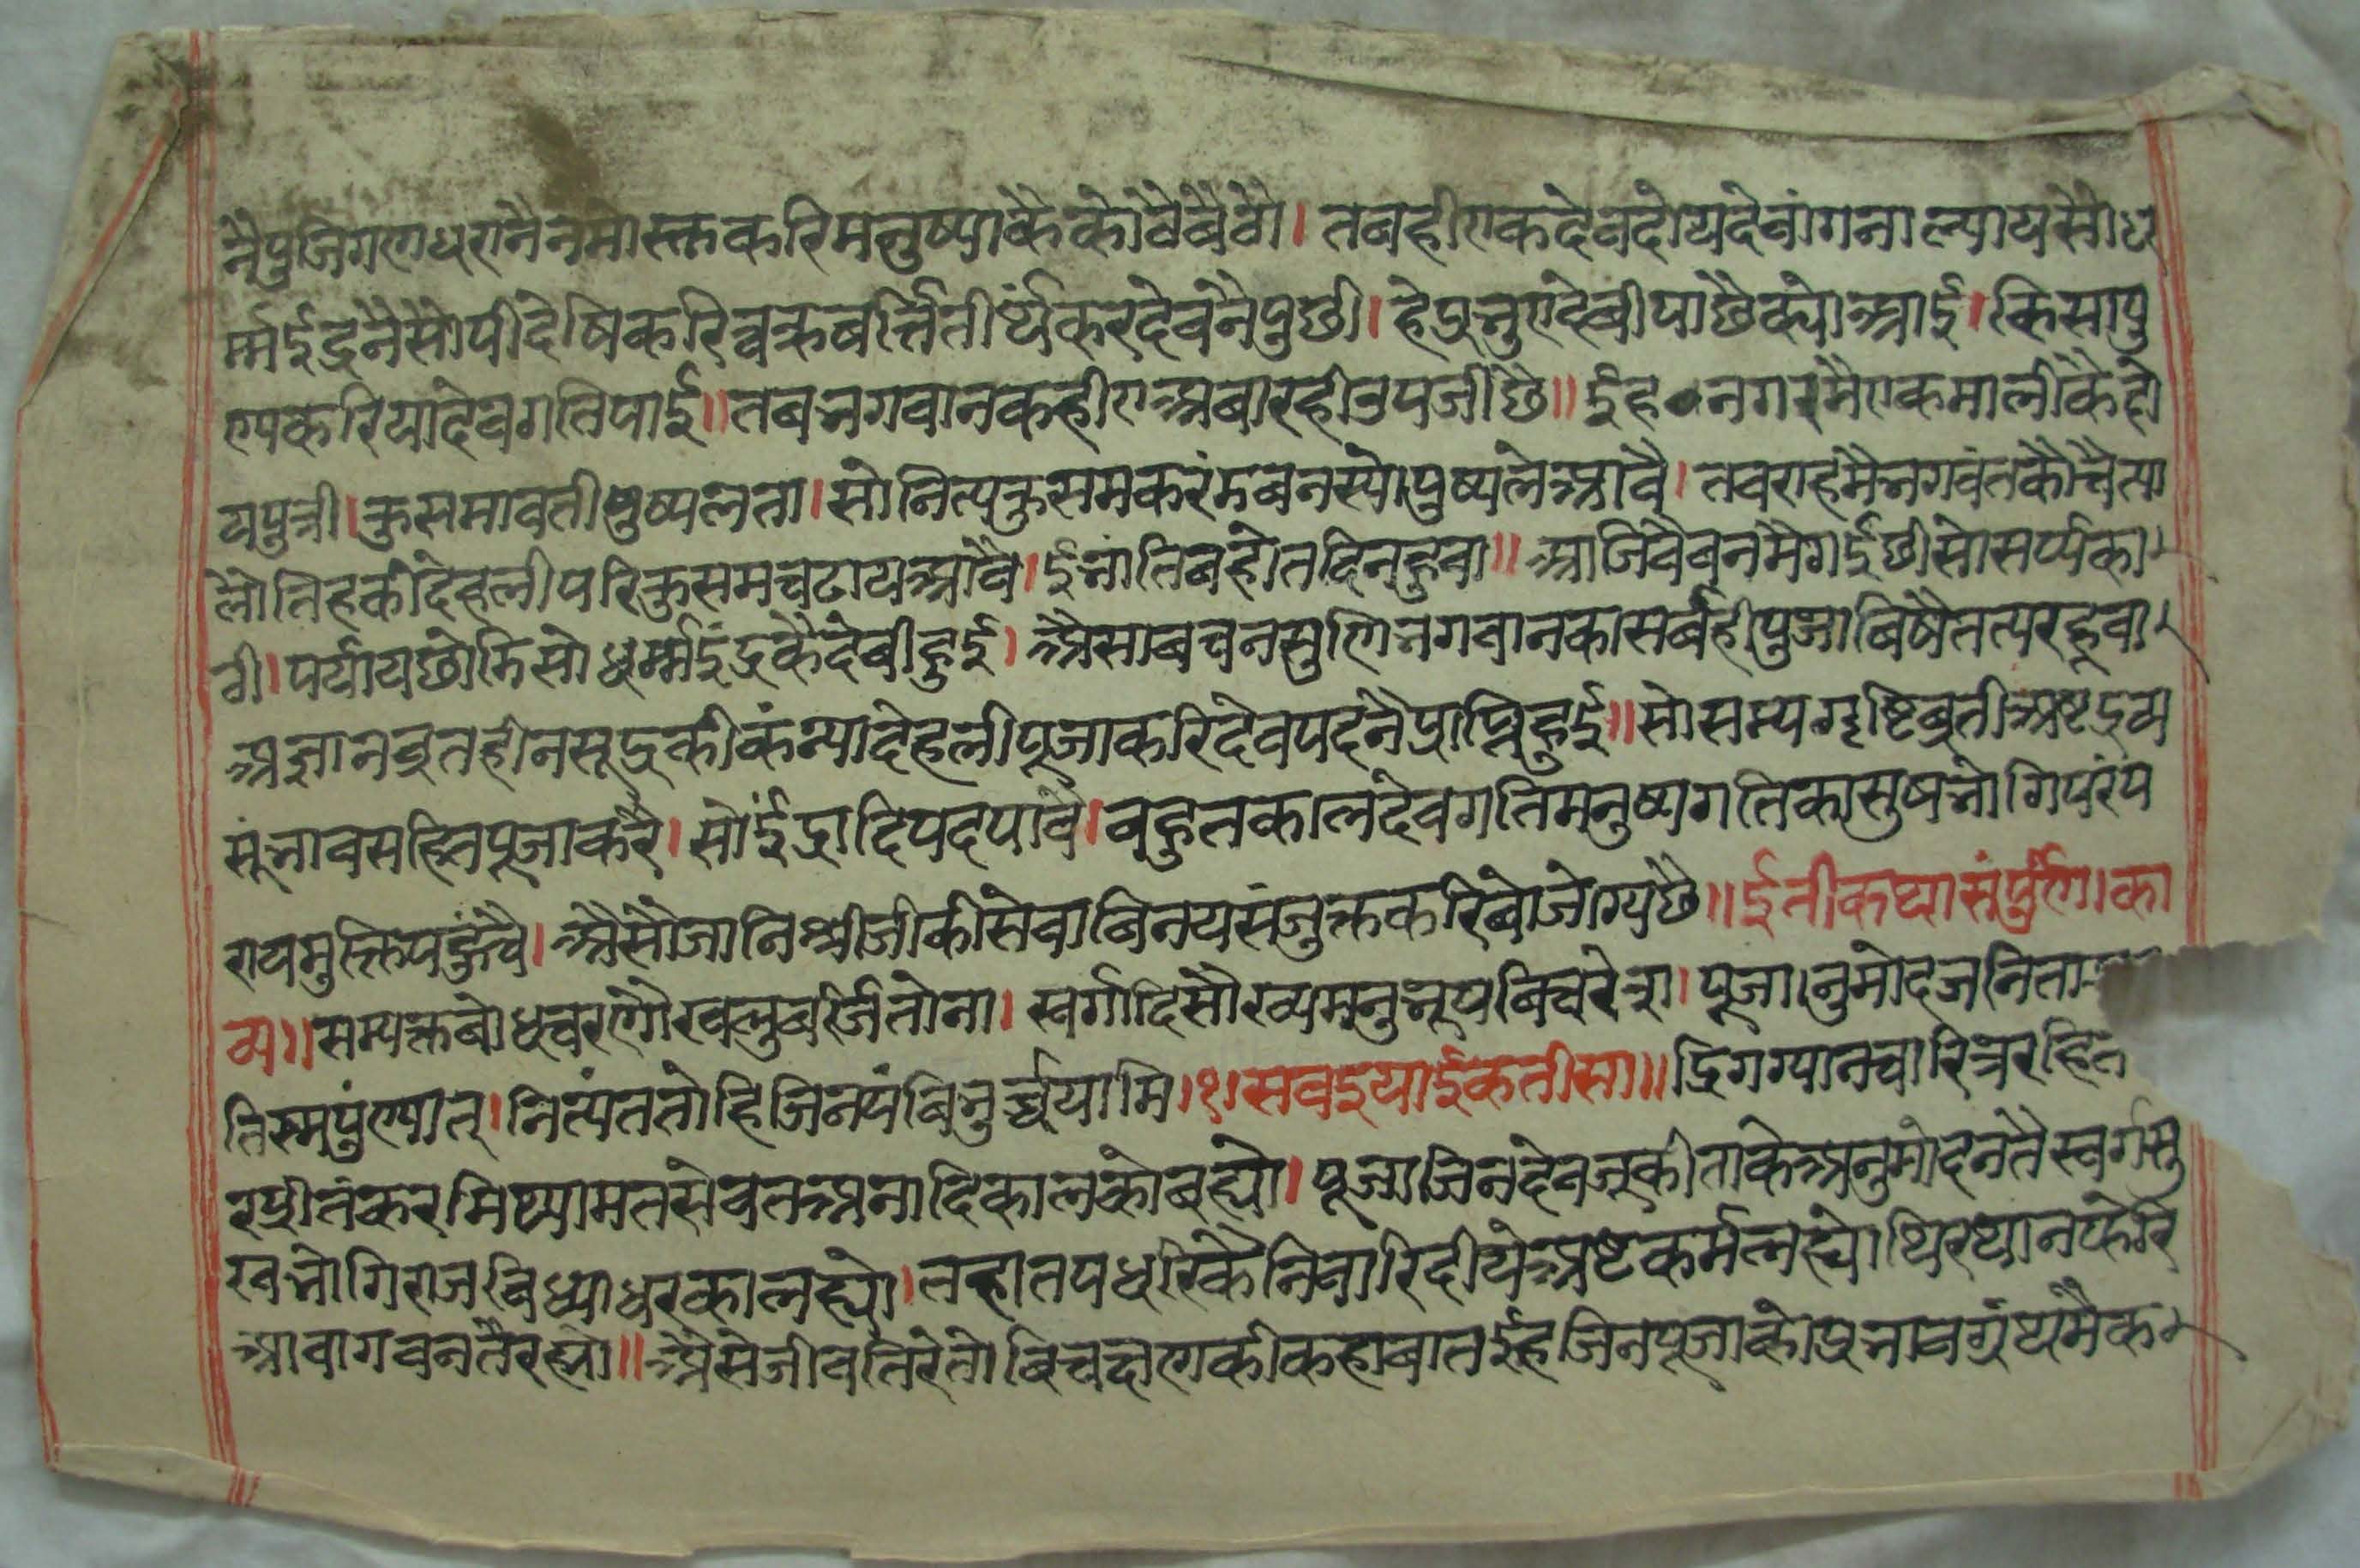 नैपुजिगणधरानैनमोस्तकरिमनुष्याकैकोठैबैठो। तबहीएकदेवदोयदेवांगनाल्यायसौध
र्म्मईंद्रनैसौपीदेषिकरिचक्रबर्त्तितीर्थंकरदेवनैपुछी। हेप्रभुएदेबीपाछैक्योआई। किसापु
ण्यकरियादेवगतिपाई॥ तबभगवानकहीएअबारहीउपजीछै॥ ईह०नगरमैएकमालीकैदो
यपुत्री। कुसमावती पुष्पलता। सोनित्यकुसमकरंमबनस्योपुष्पलेआवै। तबराहमैभगवंतकौचैत्या
लोतिहकीदेहलीपरिकुसमचढायआवै। ईभांतिबहोतदिनहुवा॥ आजिवैबनमैगईछीसोसर्प्पका
टी। पर्यायछोडिसोधर्म्मईंद्रकैदेबीहुई। औसाबचनसुणिभगवानकासर्बहीपुजाबिषैतत्परहूवा।
अज्ञानब्रतहीनसूद्रकीकंन्यादेहलीपूजाकरिदेवपदनैप्राप्तिहुई॥ सोसम्यगदृष्टिब्रतीअष्टद्रव्य
सूंभावसहितपूजाकरै। सोईंद्रादिपदपावै। बहुतकालदेवगतिमनुष्यगतिकासुषभोगिपरंप
रायमुक्तिपहुंचै। औसौजानिश्रीजीकीसेवाबिनयसंजुक्तकरिबोजोग्यछै॥ ईतीकथासंपुर्ण। का
व्य॥ सम्यक्तबोधचरणैखलुबर्जितोना। स्वर्गादिसौख्यमनुभूयबिचरेत्रा। पूजानुमोदजनिता
तिस्मपुंण्यात्। नित्यंततोहिजिनपंबिभुर्च्चयामि।१। सवइयाईकतीसा॥ द्रिगग्यानचारित्ररहित
रप्रीतंकरमिथ्यामतसेवतअनादिकालकोबह्यो। पूजाजिनदेवजूकीताकेअनुमोदनतैस्वर्गसु
खभोगिराजबिध्याधरकोलह्यो। तहातपधरिकैनिवारिदीयेअष्टकर्मलह्योथिरथानफेरि
आवागवनतैरह्यो॥ औसेजीवतिरेतोबिचक्षणकीकहाबातईहजिनपूजाकोप्रभावग्रंथमैक